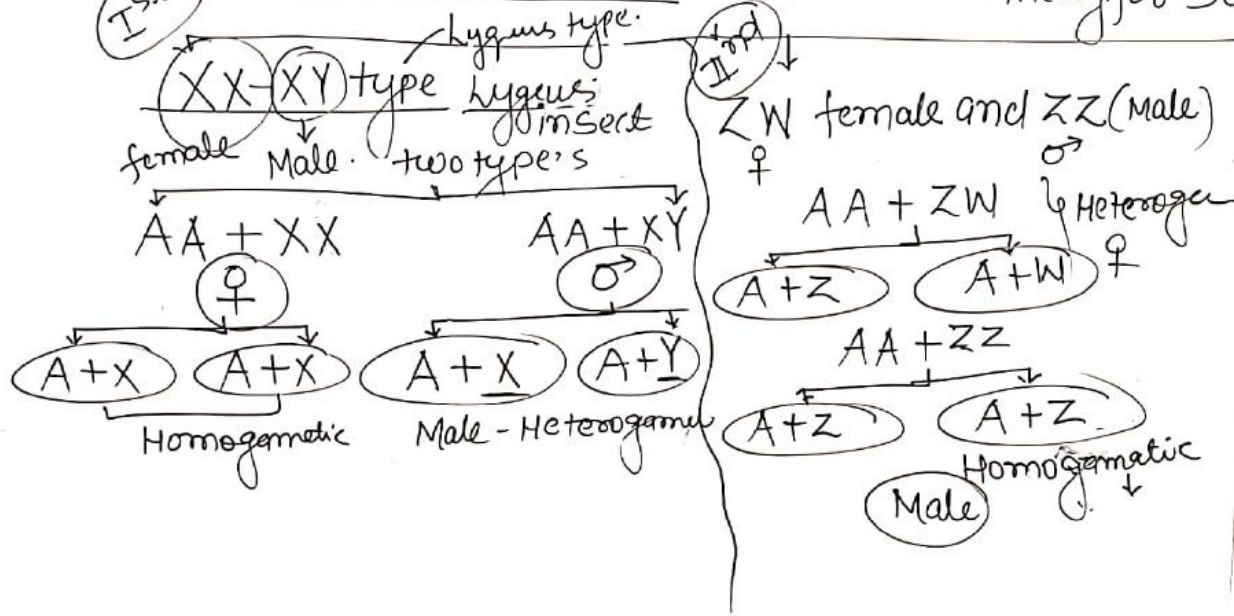 Lygeus type.
XX-XY type Lygeus
insect
female Male. two type's
AA + XX AA + XY
♀ ♂
A+X A+X A + X A+Y
Homogametic Male - Heterogame
IInd
ZW female and ZZ (Male)
♀ ♂
AA + ZW Heteroga
A+Z A+W ♀
AA + ZZ
A+Z A+Z
Homogamatic
Male